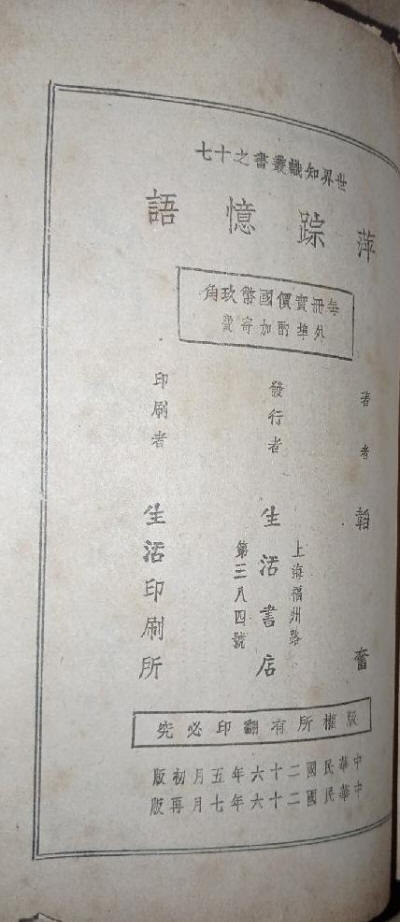 世界知識叢書之十七
萍踪憶語
每冊實價國幣玖角
外埠酌加寄費
著者 韜奮
發行者 生活書店
上海福州路
第三八四號
印刷者 生活印刷所
版權所有翻印必究
中華民國二十六年五月初版
中華民國二十六年七月再版